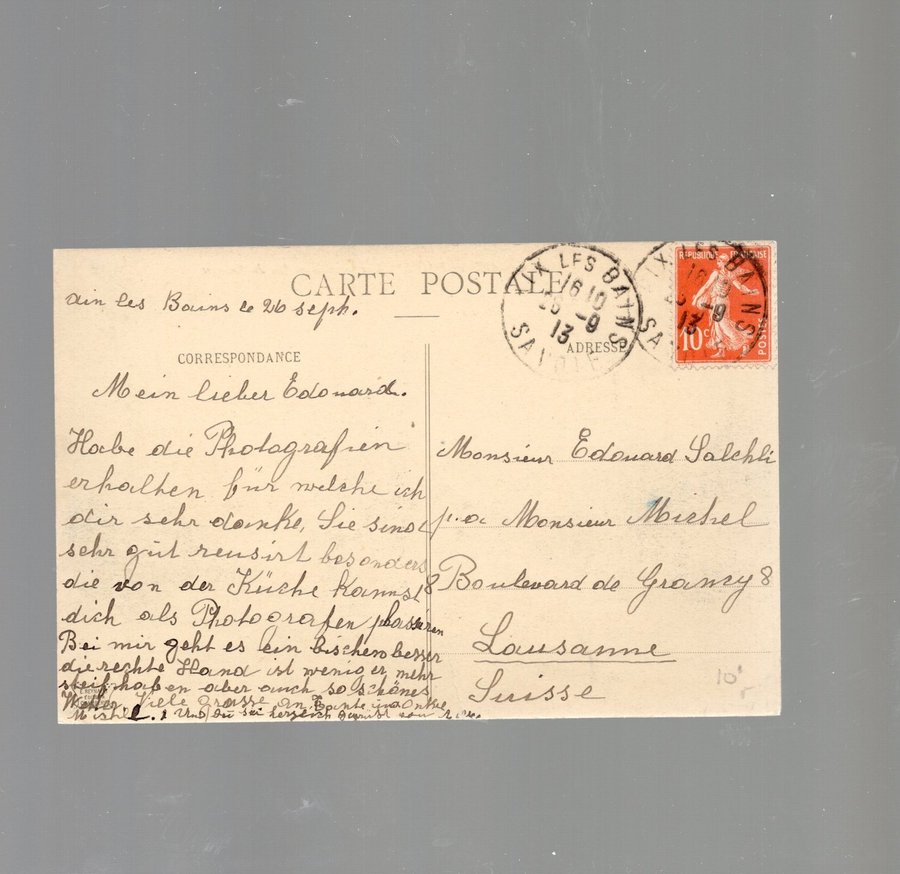 CARTE POSTALE
Aix les Bains le 26 sept.
CORRESPONDANCE
Mein lieber Edouard.
Habe die Photografien
erhalten für welche ich
dir sehr danke, Sie sind
sehr gut reusirt besonders
die von der Küche kannst
dich als Photografen plassieren
Bei mir geht es ein bischen besser
die rechte Hand ist weniger mehr
steif haben aber auch so schönes
Wetter Viele Grüsse an Tante u Onkle
Michel. Und du sei herzlich gegrüsst von
ADRESSE
Monsieur Edouard Salchli
p. a Monsieur Michel
Boulevard de Grancy 8
Lausanne
Suisse
AIX LES BAINS
16 10
-9
13
SAVOIE
IX LES BAINS
-9
13
REPUBLIQUE FRANÇAISE
10 c
POSTES
10